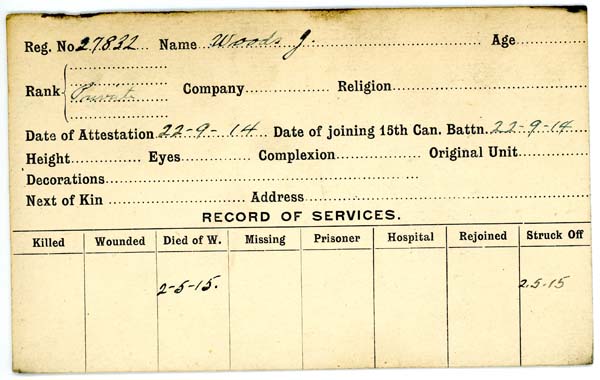 Reg. No. 27832 Name Woods J. Age
Rank Private Company Religion
Date of Attestation 22-9-14 Date of joining 15th Can. Battn. 22-9-14
Height Eyes Complexion Original Unit
Decorations
Next of Kin Address
RECORD OF SERVICES.
Killed Wounded Died of W. Missing Prisoner Hospital Rejoined Struck Off
2-5-15. 2.5.15